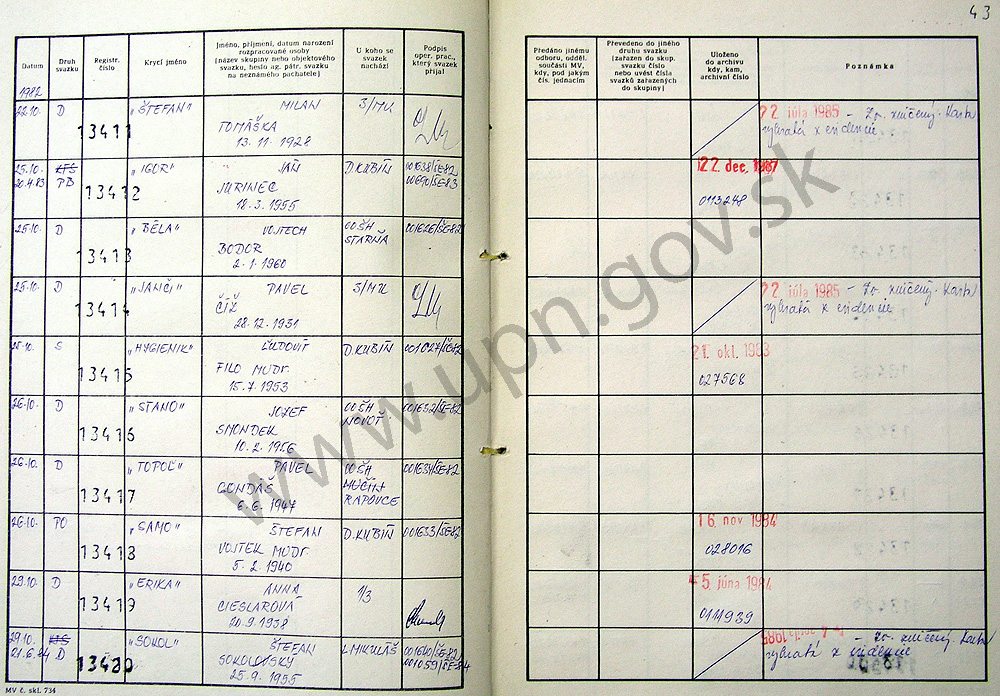 43
Datum
Druh svazku
Registr. číslo
Krycí jméno
Jméno, příjmení, datum narození
rozpracované osoby
(název skupiny nebo objektového
svazku, heslo ag. pátr. svazku
na neznámého pachatele)
U koho se
svazek
nachází
Podpis
oper. prac.,
který svazek
přijal
Předáno jinému
odboru, odděl.
součásti MV,
kdy, pod jakým
čís. jednacím
Převedeno do jiného
druhu svazku
(zařazen do skup.
svazku číslo
nebo uvést čísla
svazků zařazených
do skupiny)
Uloženo
do archivu
kdy, kam,
archivní číslo
Poznámka
1982
22.10. D 13411 "ŠTEFAN" MILAN
TOMÁŠKA
13.11.1928
S/MK
22 júla 1985 - Zv. zničený. Karta
vybratá z evidencie
25.10. KTS
20.4.83 PB
13412 "IGOR" JÁN
JURINEC
18.3.1955
D.KUBÍN 001638/ŠE-82
00690/ŠE-83
22 dec. 1987
0113248
25.10. D 13413 "BÉLA" VOJTECH
BODOR
2.1.1960
OOŠH
STARŇA
001626/ŠE-82
25.10. D 13414 "JANČI" PAVEL
ČÍŽ
28.12.1931
S/MK
22 júla 1985 - Zv. zničený. Karta
vybratá z evidencie
25.10. S 13415 "HYGIENIK" ĽUDOVÍT
FILO MUDr.
15.7.1953
D.KUBÍN 001627/ŠE-82
21. okt. 1983
027568
26.10. D 13416 "STANO" JOZEF
SMONDEK
10.2.1956
OOŠH
NOVOŤ
001632/ŠE-82
26.10. D 13417 "TOPOĽ" PAVEL
GONDÁŠ
6.6.1947
OOŠH
MUČÍN
RAPOVCE
001634/ŠE-82
26.10. PO 13418 "SAMO" ŠTEFAN
VOJTEK MUDr.
5.2.1940
D.KUBÍN 001633/ŠE-82
16 nov 1984
028016
29.10. D 13419 "ERIKA" ANNA
CIESLAROVÁ
20.9.1938
1/3
5. júna 1984
0111939
29.10. KTS
21.6.84 D
13420 "SOKOL" ŠTEFAN
SOKOLOVSKÝ
25.9.1955
L.MIKULÁŠ 001640/ŠE-82
001059/ŠE-84
1985 - Zv. zničený. Karta
vybratá z evidencie
MV č. skl. 734
www.upn.gov.sk